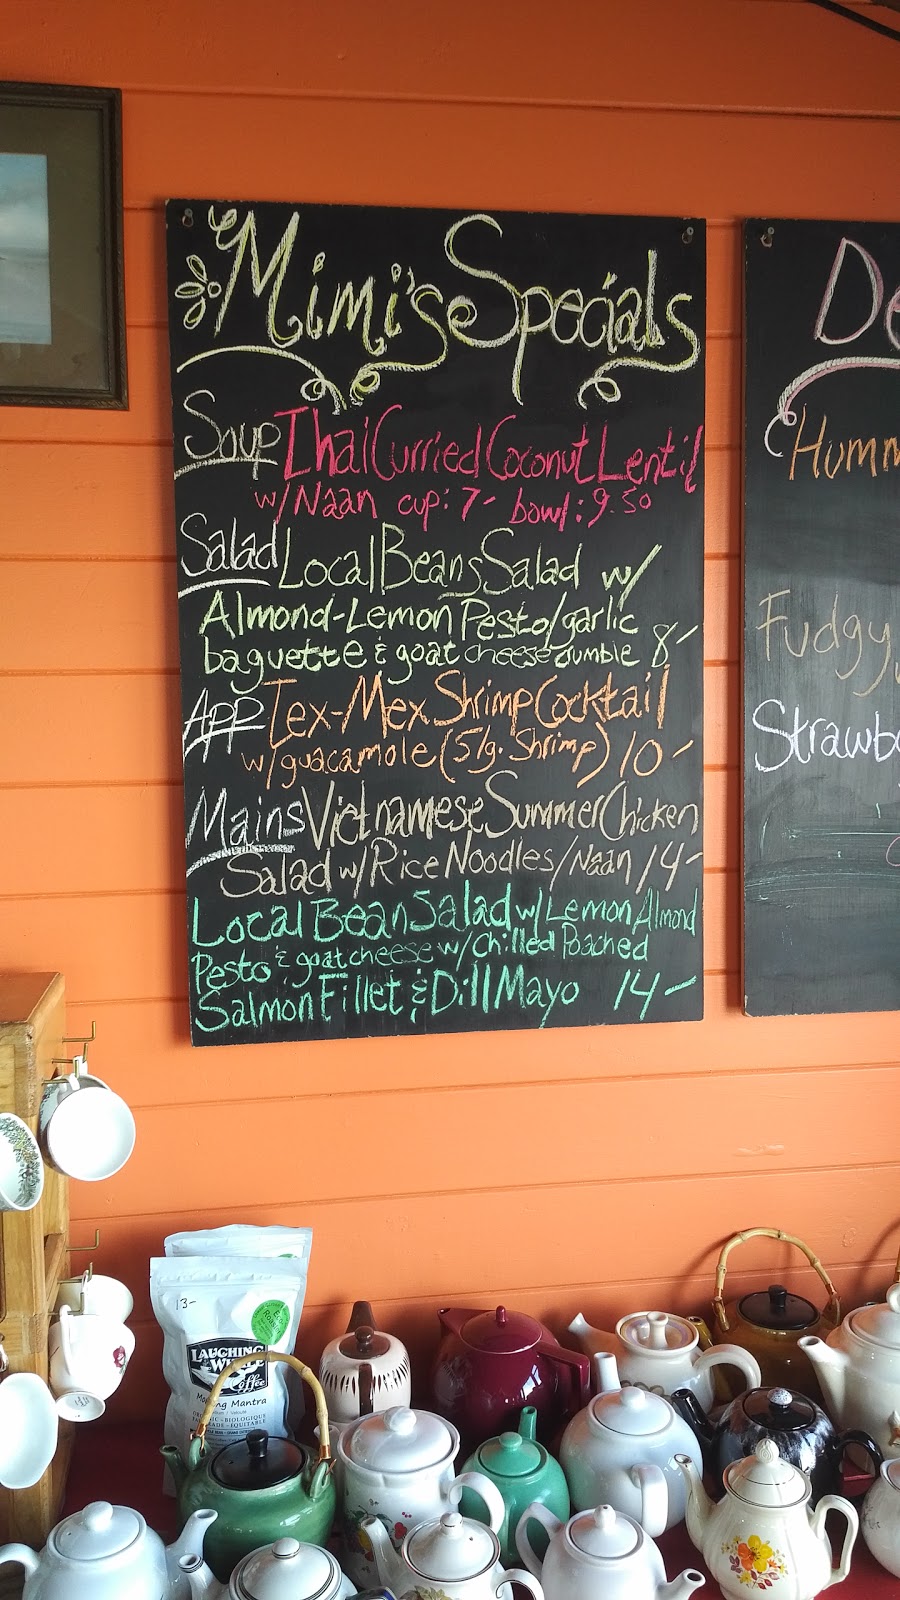 Mimi's Specials
Soup Thai Curried Coconut Lentil
w/ Naan cup: 7- bowl: 9.50
Salad Local Beans Salad w/
Almond-Lemon Pesto/garlic
baguette & goat cheese crumble 8-
App Tex-Mex Shrimp Cocktail
w/guacamole (5 lg. Shrimp) 10-
Mains Vietnamese Summer Chicken
Salad w/ Rice Noodles/Naan 14-
Local Bean Salad w/ Lemon Almond
Pesto & goat cheese w/ Chilled Poached
Salmon Fillet & Dill Mayo 14-
De
Humm
Fudgy
Strawb
13-
LAUGHING
WHALE
Coffee
Morning Mantra